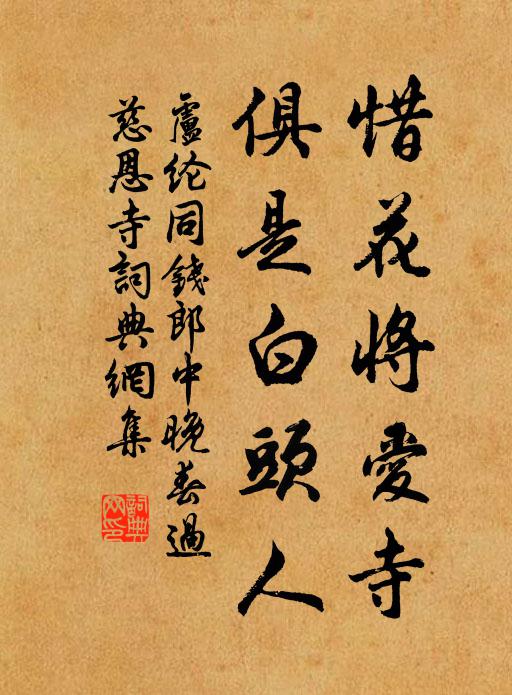 惜花将愛寺
俱是白頭人
盧纶同錢郎中晚春過
慈恩寺詞典網集
詞典
网印